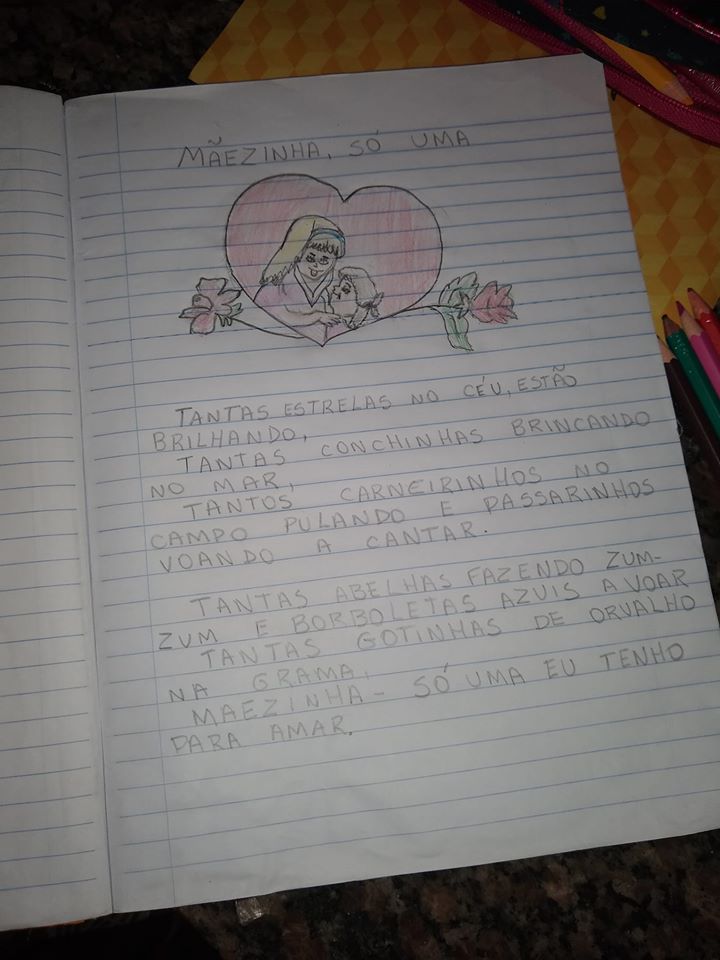 MÃEZINHA, SÓ UMA
TANTAS ESTRELAS NO CÉU, ESTÃO
BRILHANDO,
TANTAS CONCHINHAS BRINCANDO
NO MAR,
TANTOS CARNEIRINHOS NO
CAMPO PULANDO E PASSARINHOS
VOANDO A CANTAR.
TANTAS ABELHAS FAZENDO ZUM-
ZUM E BORBOLETAS AZUIS A VOAR
TANTAS GOTINHAS DE ORVALHO
NA GRAMA,
MAEZINHA - SÓ UMA EU TENHO
PARA AMAR.